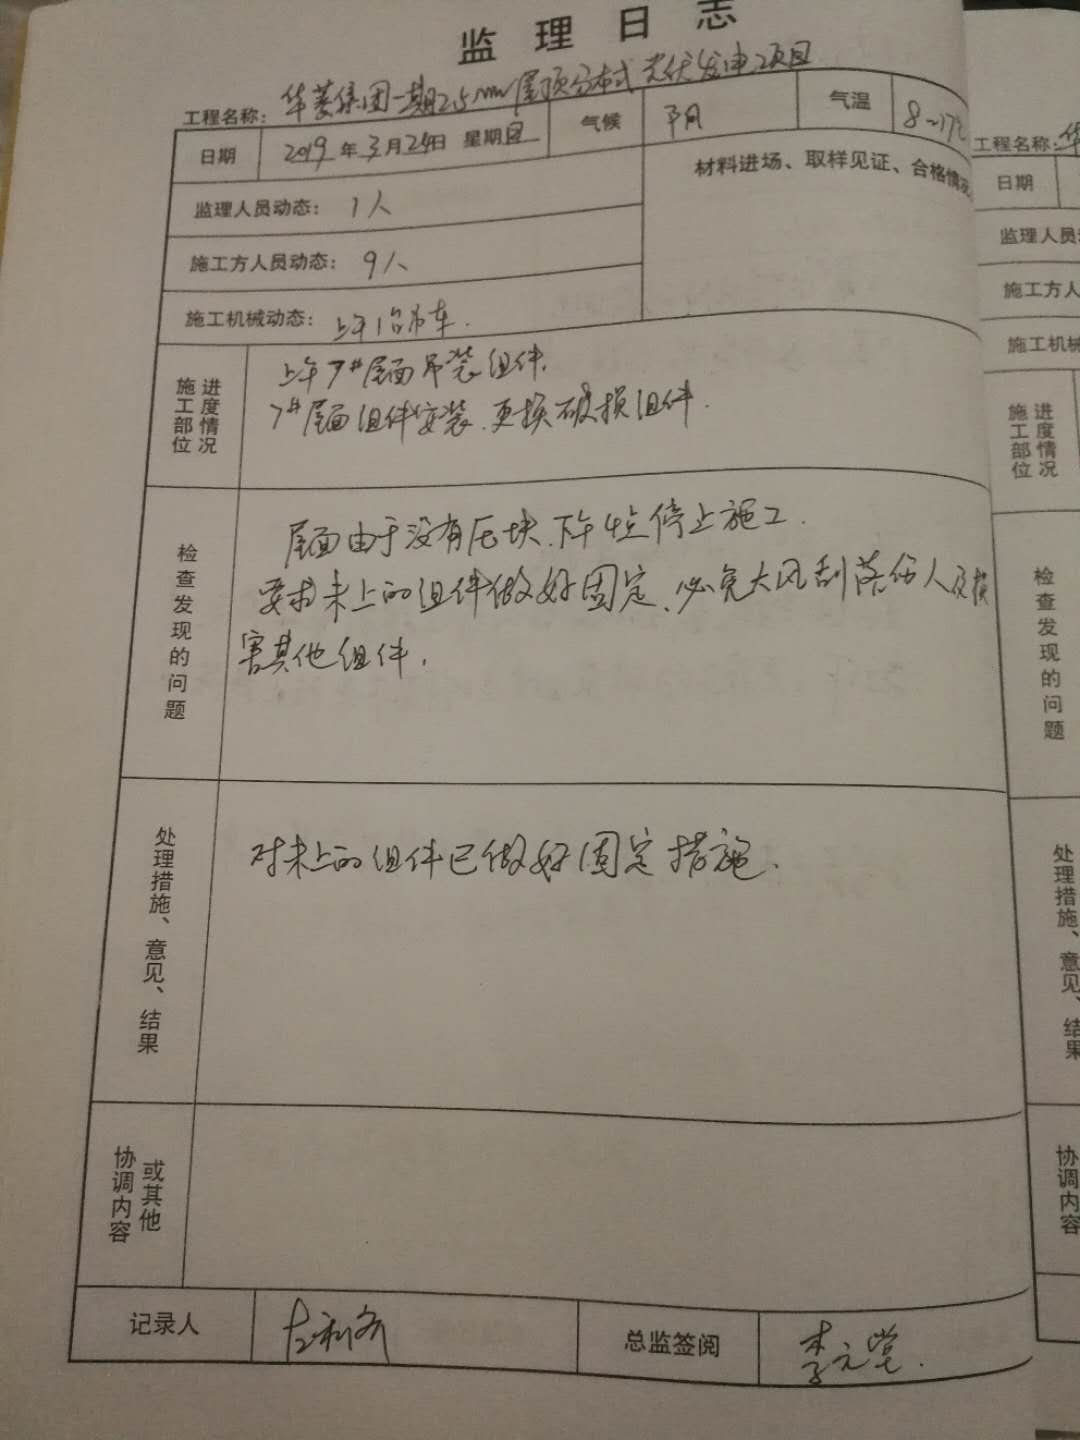 监理日志
工程名称：华菱集团一期25MW屋顶分布式光伏发电项目
日期 2019年3月24日 星期日 气候 阴 气温 8~17℃
监理人员动态：1人
材料进场、取样见证、合格情况
施工方人员动态：9人
施工机械动态：上午1台吊车.
施工部位 进度情况
上午7#屋面吊装组件.
7#屋面组件安装.更换破损组件.
检查发现的问题
屋面由于没有压块.下午4点停止施工.
要求未上的组件做好固定、必免大风刮落伤人及损
害其他组件.
处理措施、意见、结果
对未上的组件已做好固定措施.
协调内容 或其他
记录人 总监签阅 李元堂.
工程名称：华
日期
监理人员
施工方人
施工机械
施工部位 进度情况
检查发现的问题
处理措施、意见、结果
协调内容